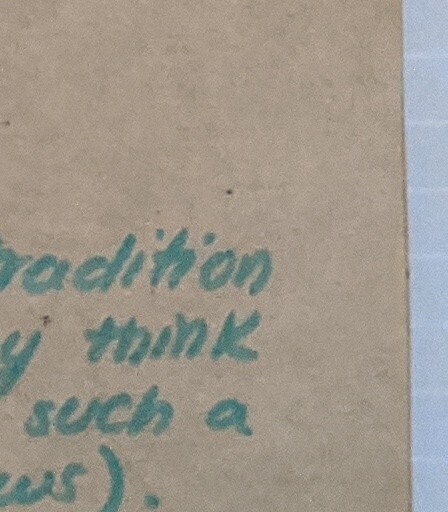 radition
y think
such a
ws).